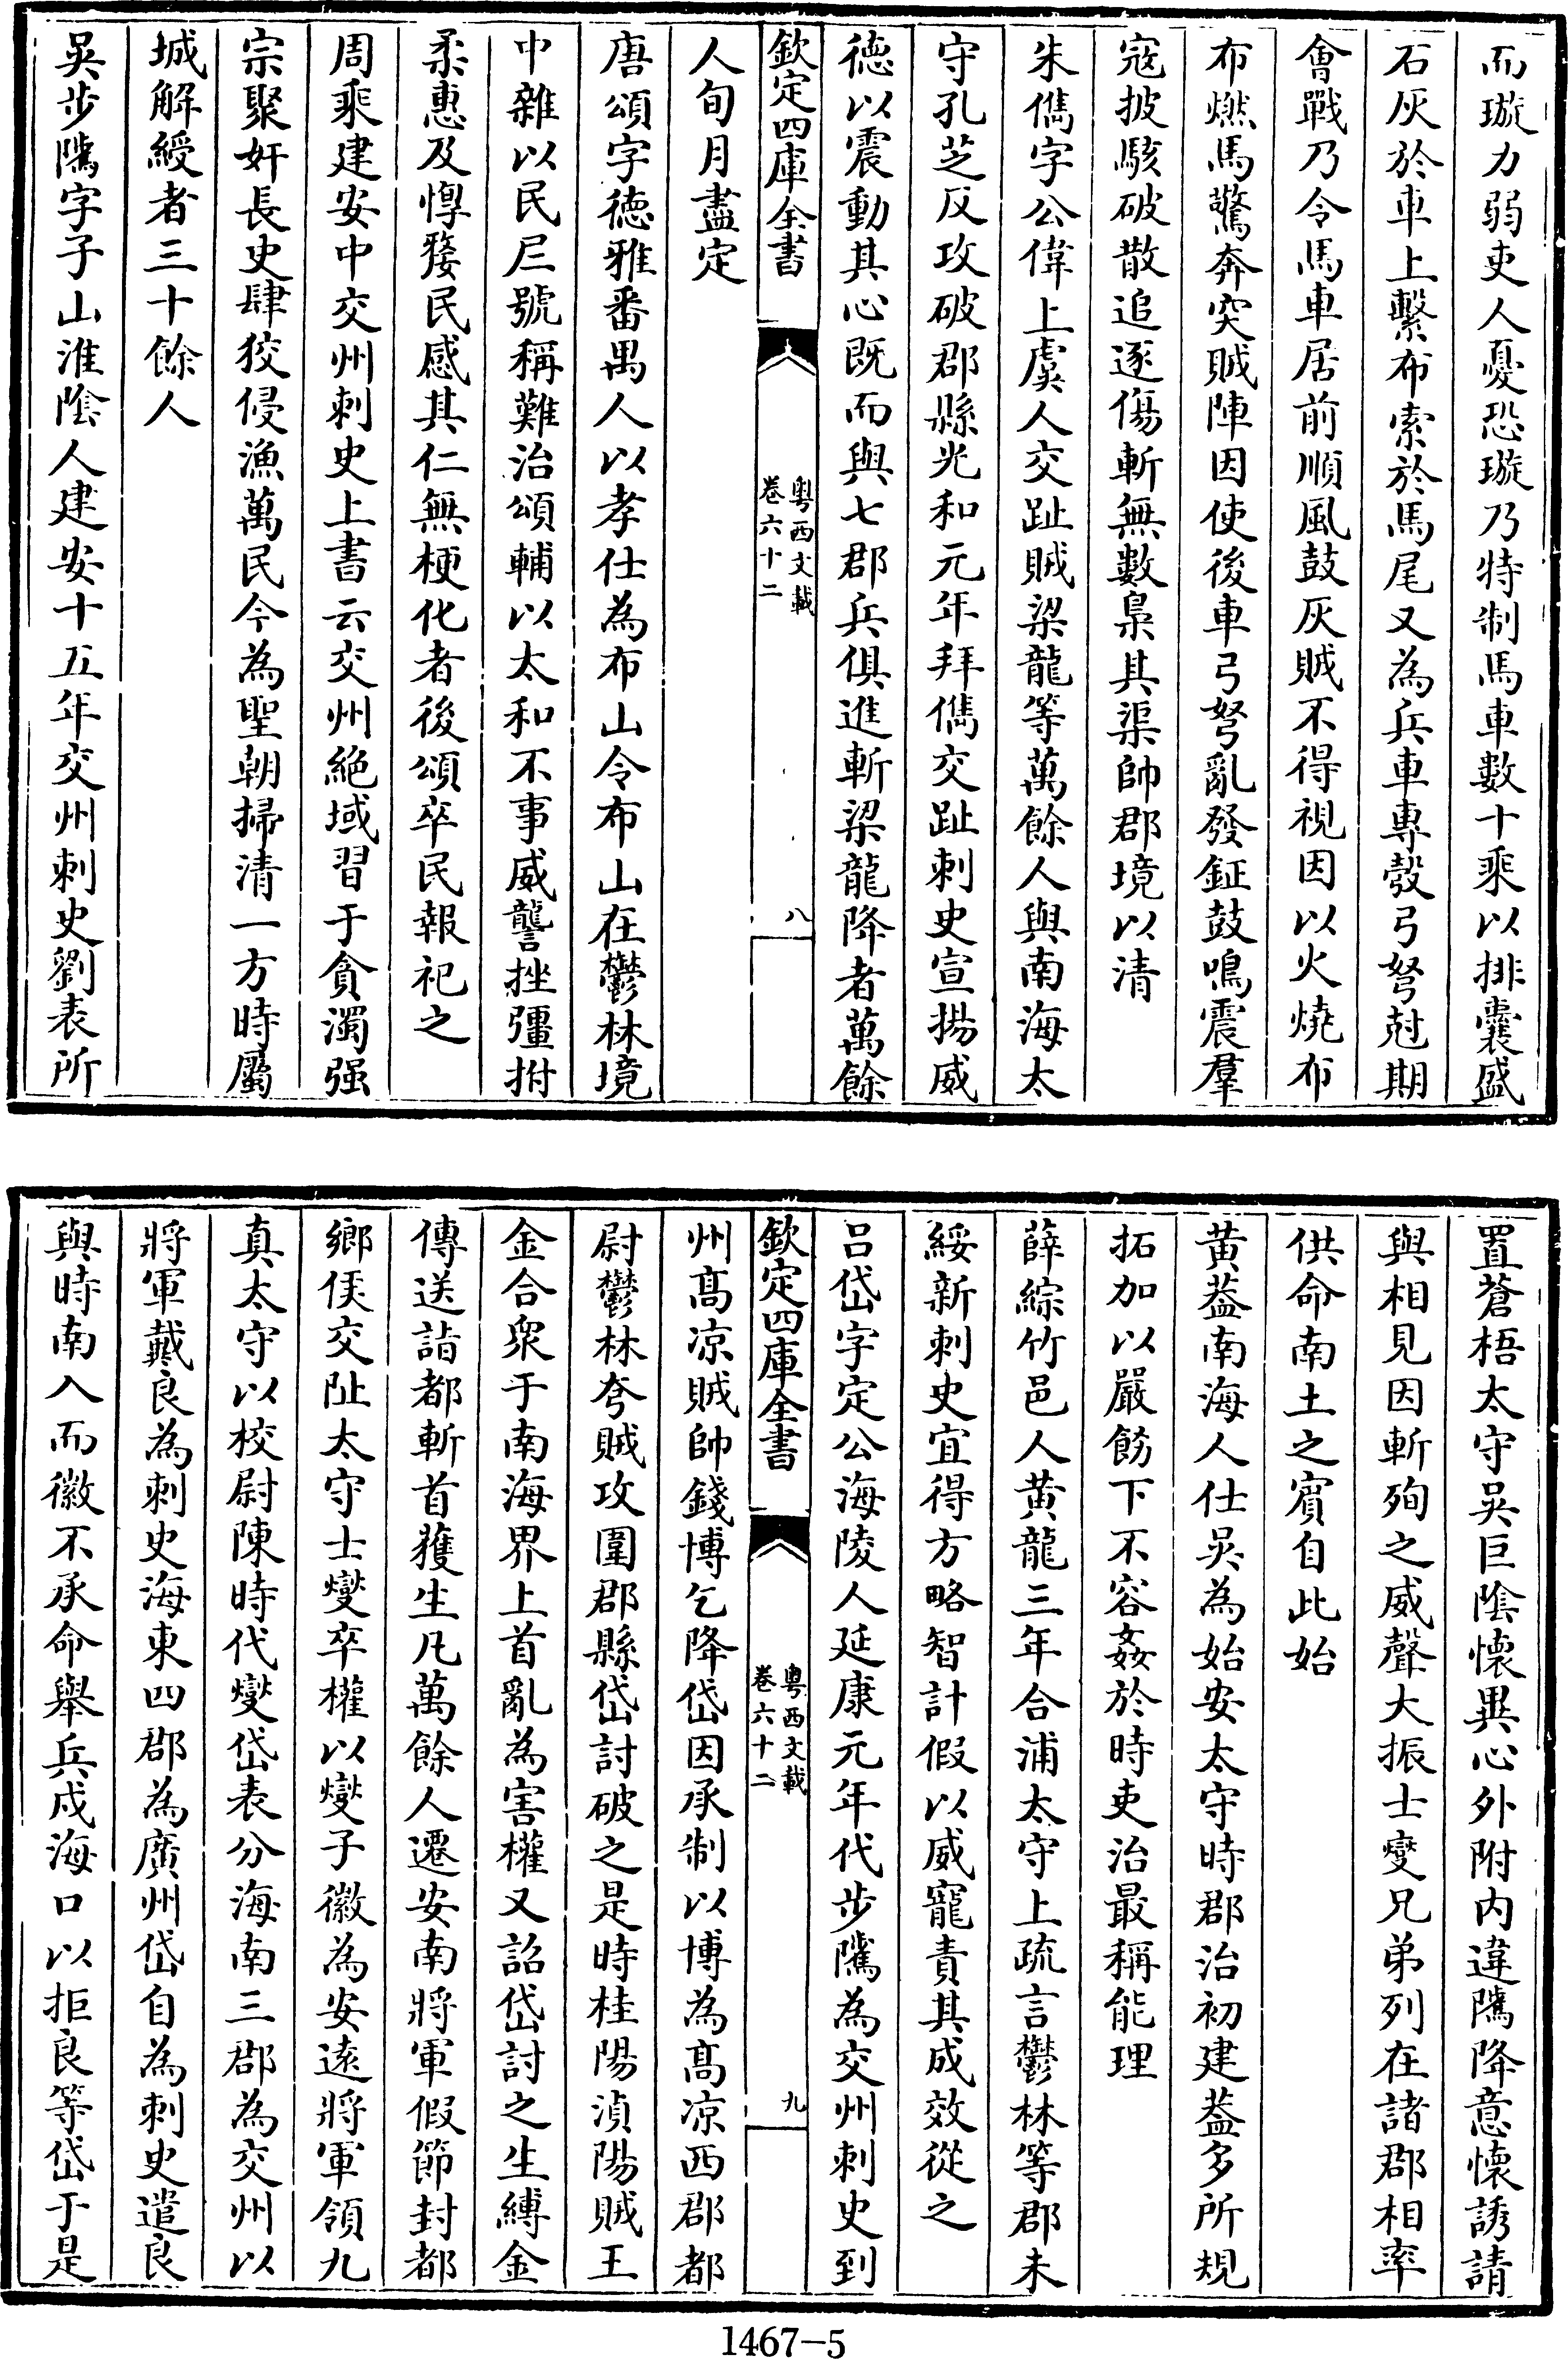 而璇力弱吏人憂恐璇乃特制馬車數十乘以排囊盛
石灰於車上繫布索於馬尾又為兵車專彀弓弩尅期
會戰乃令馬車居前順風鼓灰賊不得視因以火燒布
布燃馬驚奔突賊陣因使後車弓弩亂發鉦鼓鳴震羣
寇披駭破散追逐傷斬無數梟其渠帥郡境以清
朱儁字公偉上虞人交趾賊梁龍等萬餘人與南海太
守孔芝反攻破郡縣光和元年拜儁交趾刺史宣揚威
德以震動其心既而與七郡兵俱進斬梁龍降者萬餘
欽定四庫全書
粤西文載
卷六十二
八
人旬月盡定
唐頌字徳雅番禺人以孝仕為布山令布山在鬱林境
中雜以民𡰥號稱難治頌輔以太和不事威讋挫彊拊
柔惠及惸嫠民感其仁無梗化者後頌卒民報祀之
周乘建安中交州刺史上書云交州絶域習于貪濁强
宗聚奸長史肆狡侵漁萬民今為聖朝掃清一方時屬
城解綬者三十餘人
吳步隲字子山淮陰人建安十五年交州刺史劉表所
置蒼梧太守吳巨陰懷異心外附内違隲降意懷誘請
與相見因斬殉之威聲大振士燮兄弟列在諸郡相率
供命南土之賓自此始
黄葢南海人仕吳為始安太守時郡治初建葢多所規
拓加以嚴飭下不容姦於時吏治最稱能理
薛綜竹邑人黄龍三年合浦太守上疏言鬱林等郡未
綏新刺史宜得方略智計假以威寵責其成效從之
吕岱字定公海陵人延康元年代步隲為交州刺史到
欽定四庫全書
粤西文載
卷六十二
九
州髙凉賊帥錢博乞降岱因承制以博為髙凉西郡都
尉鬱林夸賊攻圍郡縣岱討破之是時桂陽湞陽賊王
金合衆于南海界上首亂為害權又詔岱討之生縛金
傳送詣都斬首獲生凡萬餘人遷安南將軍假節封都
鄉侯交阯太守士燮卒權以燮子徽為安逺將軍領九
真太守以校尉陳時代燮岱表分海南三郡為交州以
將軍戴良為刺史海東四郡為廣州岱自為刺史遣良
與時南入而徽不承命舉兵戍海口以拒良等岱于是
1467-5